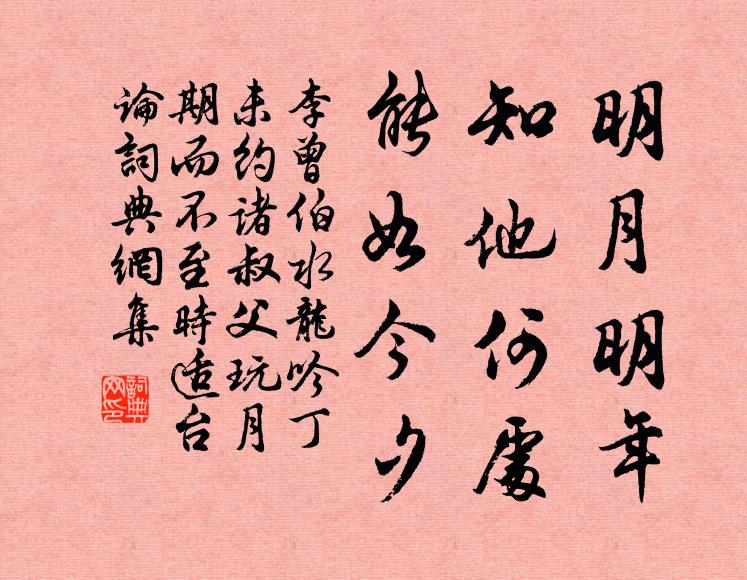 明月明年
知他何處
能如今夕
李曾伯水龍吟丁
未約諸叔父玩月
期而不至時適台
論詞典網集
詞典網印